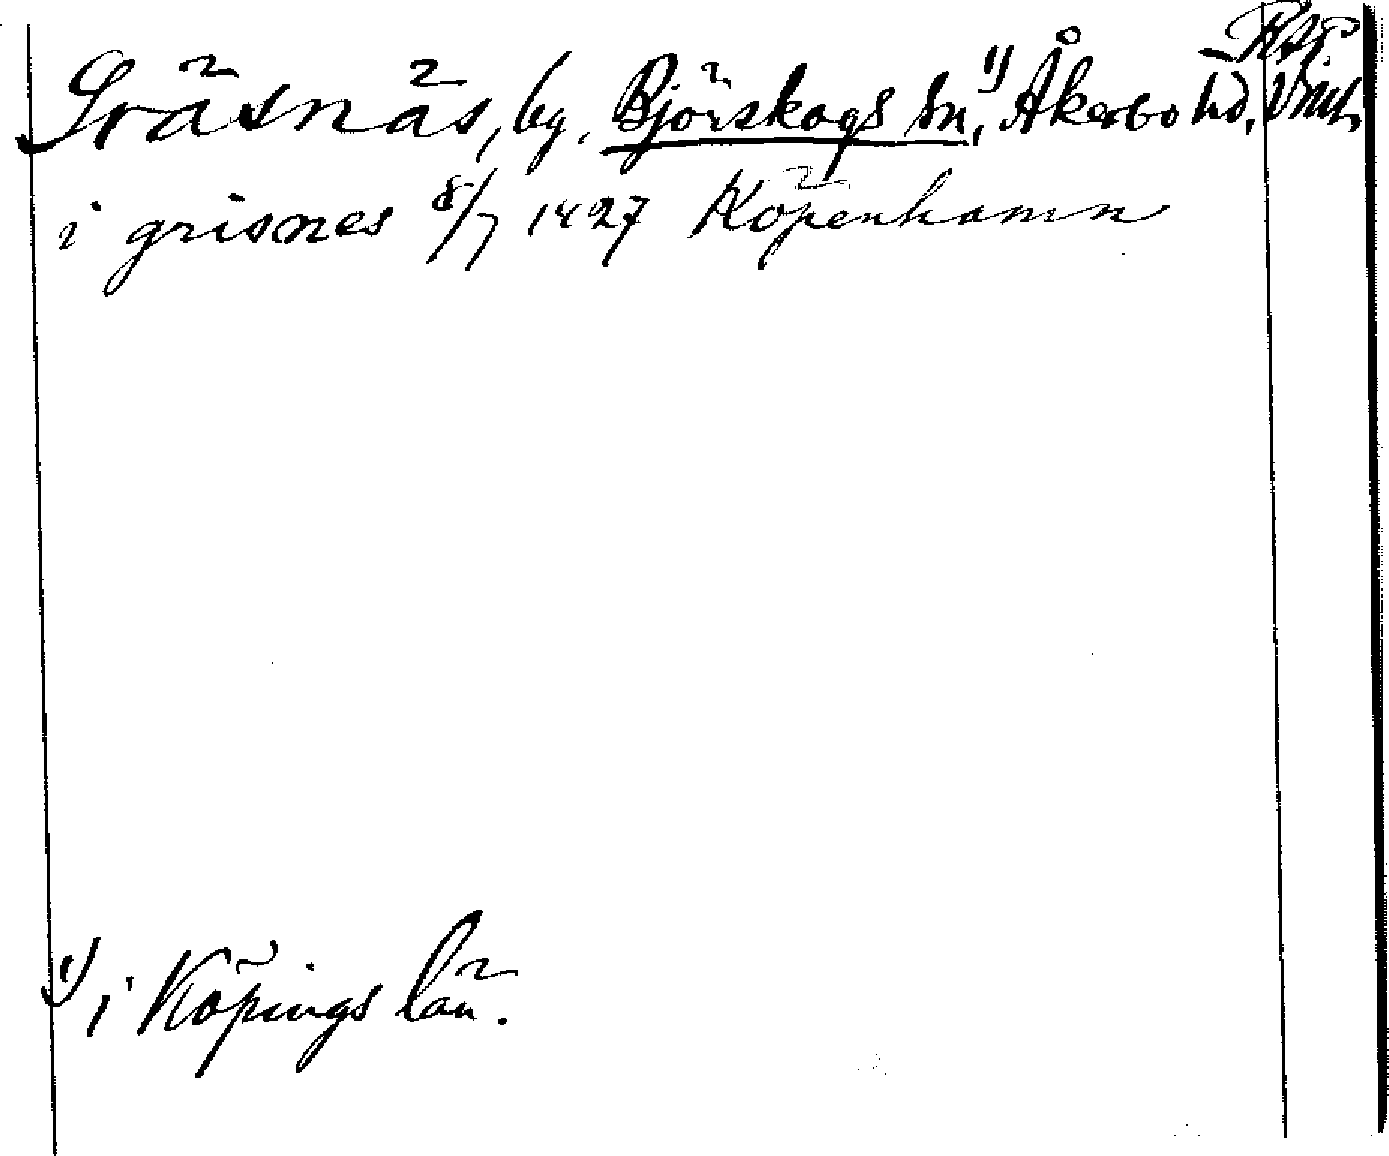 Gräsnäs, by, Björskogs sn,¹⁾ Åkerbo hd, Vml.
i grisnes 8/7 1427 Köpenhamn
¹⁾ i Köpings län.